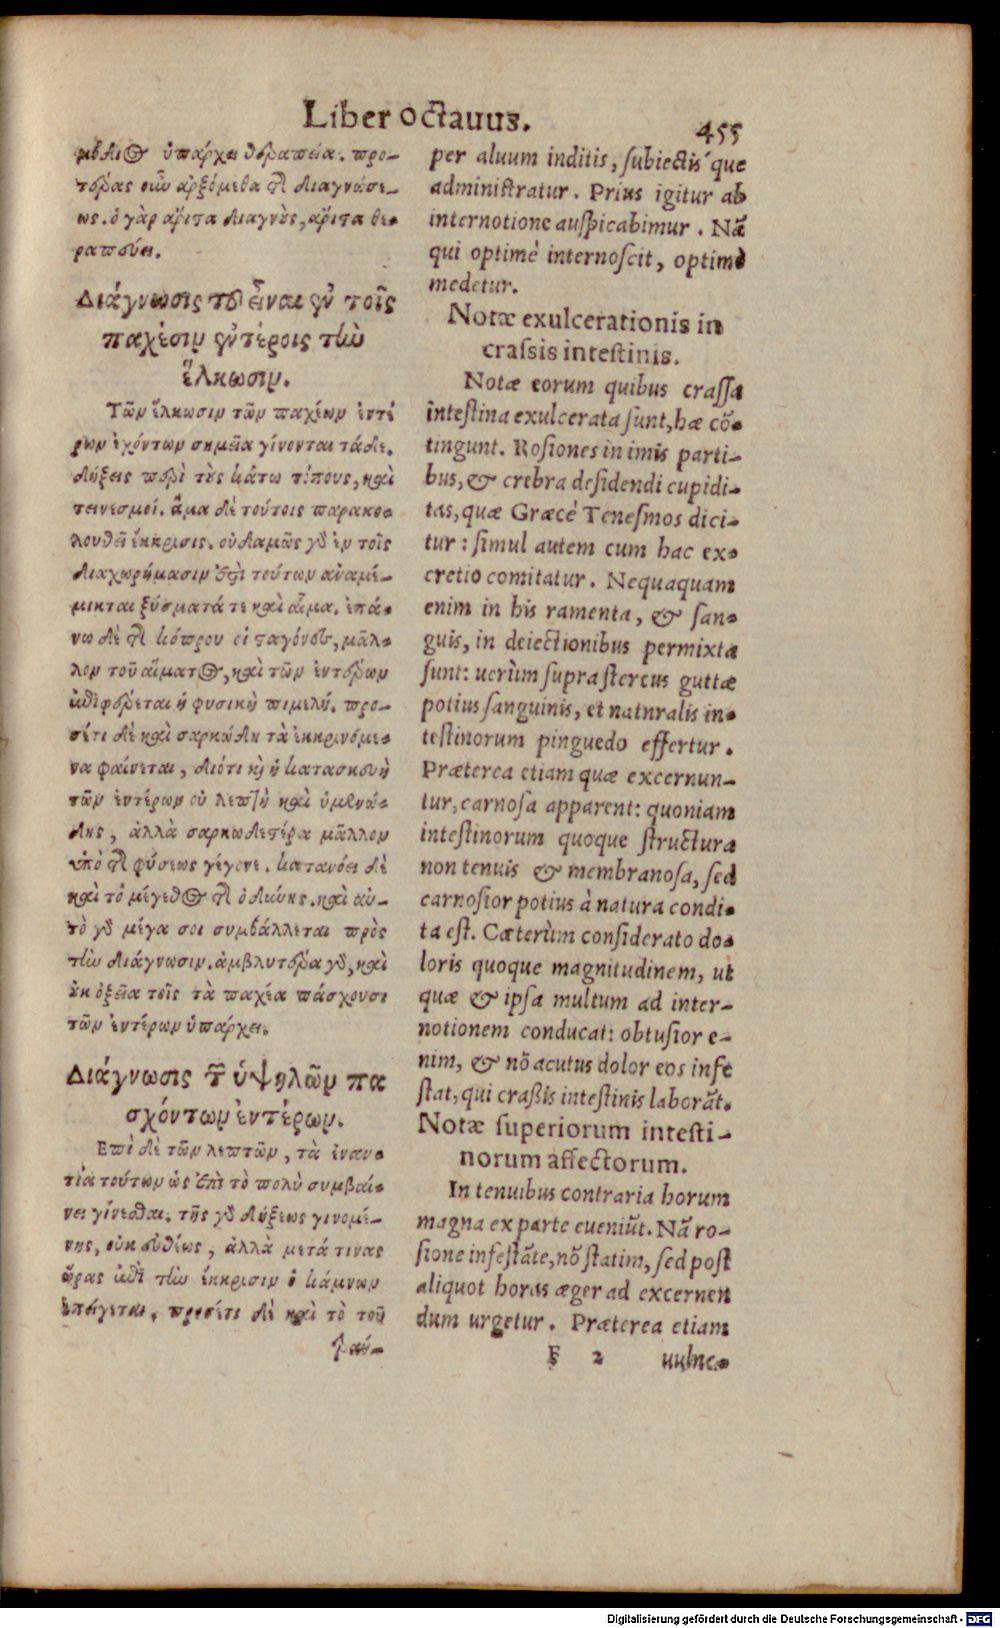 Liber octauus.
455
μένοις ὑπάρχει θεραπεία. προ-
τέρας οὖν ἀρξόμεθα τῆς διαγνώσε-
ως. ὁ γὰρ ἄριστα διαγνοὺς, ἄριστα θε-
ραπεύει.
Διάγνωσις τοῦ εἶναι ἐν τοῖς
παχέσιν ἐντέροις τὴν
ἕλκωσιν.
Τῶν ἕλκωσιν τῶν παχέων ἐντέ
ρων ἐχόντων σημεῖα γίνονται τάδε.
δήξεις περὶ τοὺς κάτω τόπους, καὶ
τεινεσμοί. ἅμα δὲ τούτοις παρακο-
λουθεῖ ἔκκρισις. οὐδαμῶς γὰρ ἐν τοῖς
διαχωρήμασιν ἐπὶ τούτων ἀναμέ-
μικται ξύσματά τε καὶ αἷμα. ἐπά-
νω δὲ τῆς κόπρου οἱ σταγόνες, μᾶλ-
λον τοῦ αἵματος, καὶ τῶν ἐντέρων
ἐπιφέρεται ἡ φυσικὴ πιμελή. προ-
σέτι δὲ καὶ σαρκώδη τὰ ἐκκρινόμε-
να φαίνεται, διότι καὶ ἡ κατασκευὴ
τῶν ἐντέρων οὐ λεπτὴ καὶ ὑμενώ-
δης, ἀλλὰ σαρκωδεστέρα μᾶλλον
ὑπὸ τῆς φύσεως γέγονε. κατανόει δὲ
καὶ τὸ μέγεθος τῆς ὀδύνης. καὶ αὐ-
τὸ γὰρ μέγα σοι συμβάλλεται πρὸς
τὴν διάγνωσιν. ἀμβλυτέρα γὰρ, καὶ
οὐκ ὀξεῖα τοῖς τὰ παχέα πάσχουσι
τῶν ἐντέρων ὑπάρχει.
Διάγνωσις τῶν ὑψηλῶν πα
σχόντων ἐντέρων.
Επὶ δὲ τῶν λεπτῶν, τὰ ἐναν-
τία τούτων ὡς ἐπὶ τὸ πολὺ συμβαί-
νει γίνεσθαι. τῆς γὰρ δήξεως γινομέ-
νης, οὐκ εὐθέως, ἀλλὰ μετά τινας
ὥρας ἐπὶ τὴν ἔκκρισιν ὁ κάμνων
ἐπείγεται. προσέτι δὲ καὶ τὸ τοῦ
τραύ-
per aluum inditis, subiectis´que
administratur. Prius igitur ab
internotione auspicabimur. Nā
qui optimè internoscit, optimè
medetur.
Notæ exulcerationis in
crassis intestinis.
Notæ eorum quibus crassa
intestina exulcerata sunt, hæ cō-
tingunt. Rosiones in imis parti-
bus, & crebra desidendi cupidi-
tas, quæ Græcè Tenesmos dici-
tur: simul autem cum hac ex-
cretio comitatur. Nequaquam
enim in his ramenta, & san-
guis, in deiectionibus permixta
sunt: uerùm supra stercus guttæ
potius sanguinis, et natnralis in-
testinorum pinguedo effertur.
Præterea etiam quæ excernun-
tur, carnosa apparent: quoniam
intestinorum quoque structura
non tenuis & membranosa, sed
carnosior potius à natura condi-
ta est. Cæterùm considerato do-
loris quoque magnitudinem, ut
quæ & ipsa multum ad inter-
notionem conducat: obtusior e-
nim, & nō acutus dolor eos infe
stat, qui crassis intestinis laborāt.
Notæ superiorum intesti-
norum affectorum.
In tenuibus contraria horum
magna ex parte eueniūt. Nā ro-
sione infestāte, nō statim, sed post
aliquot horas æger ad excernen
dum urgetur. Præterea etiam
F 2 uulne-
Digitalisierung gefördert durch die Deutsche Forschungsgemeinschaft - DFG